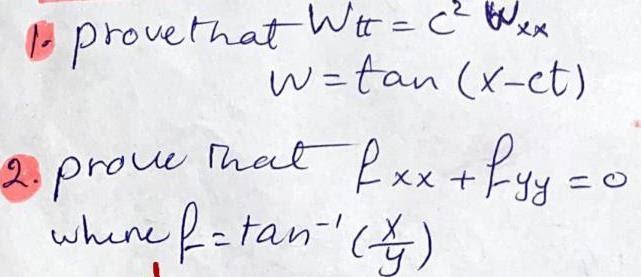 1. prove that Wtt = c² Wxx
w = tan (x-ct)
2. prove that fxx + fyy = 0
where f = tan⁻¹ (x/y)